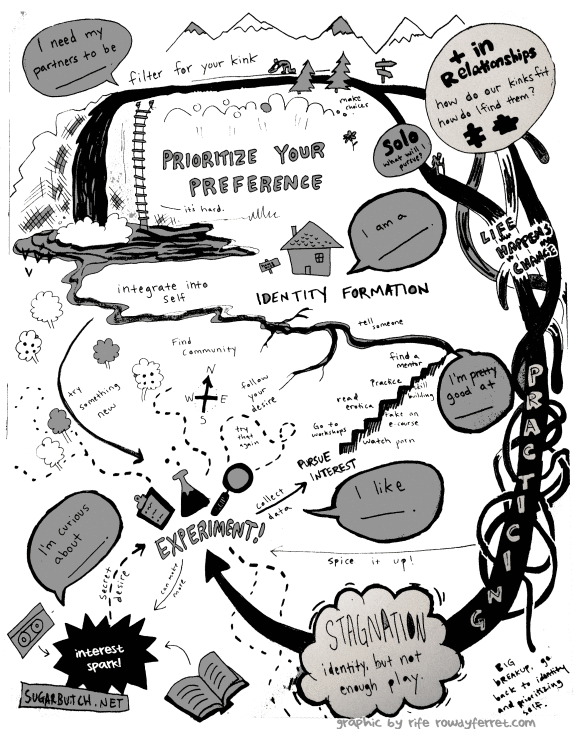 I need my
partners to be
filter for your kink
+ in
Relationships
how do our kinks fit
how do I find them?
make
choices
Solo
what will I
pursue?
PRIORITIZE YOUR
PREFERENCE
it's hard.
I am a
LIFE
HAPPENS
CHANGE
integrate into
self
IDENTITY FORMATION
tell
someone
Find
Community
N
W E
S
follow
your
desire
try
that
again
try
something
new
find a
mentor
Practice
skill
building
read
erotica
take an
e-course
Go to
workshops
watch porn
PURSUE
INTEREST
I'm pretty
good at
PRACTICING
I like
collect
data
EXPERIMENT!
I'm curious
about
spice it up!
secret
desire
interest
spark!
STAGNATION
identity, but not
enough play.
BIG
BREAKUP, go
back to identity
and prioritizing
self.
SUGARBUTCH.NET
graphic by rife rowdyferret.com